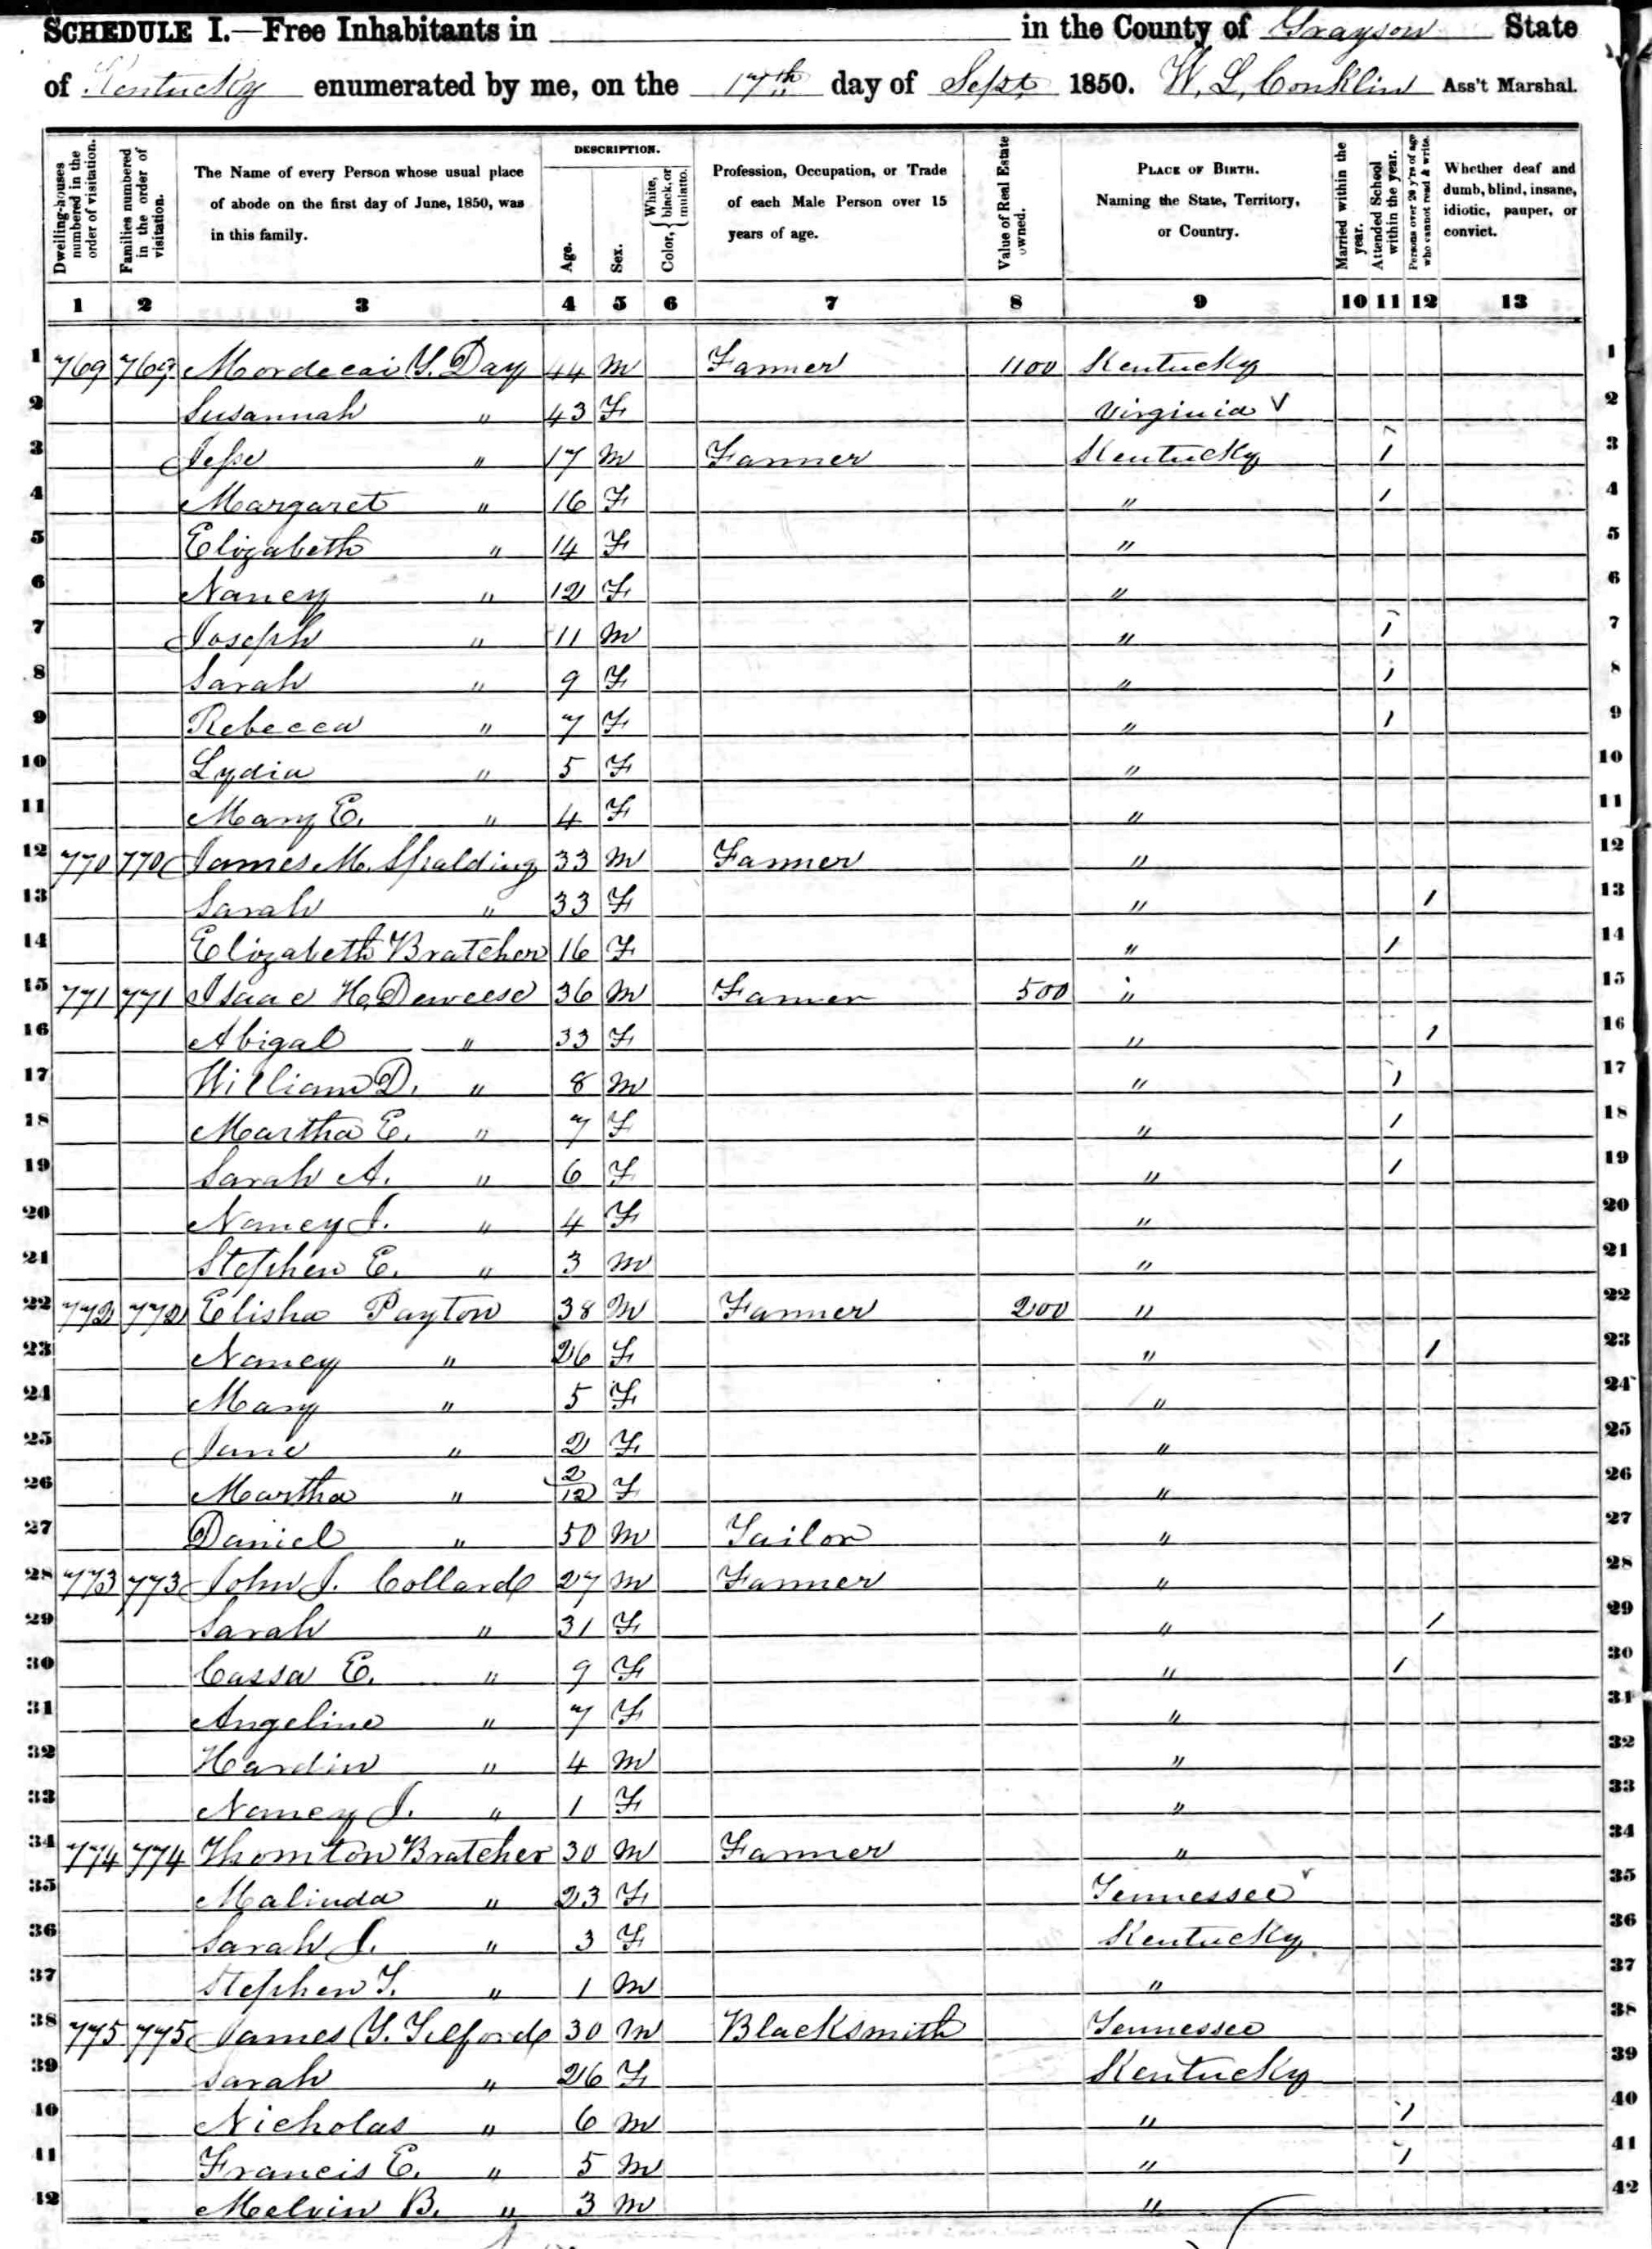 SCHEDULE I.—Free Inhabitants in in the County of Grayson State
of Kentucky enumerated by me, on the 17th day of Sept 1850. W. L. Conklin Ass't Marshal.
Dwelling-houses numbered in the order of visitation.
Families numbered in the order of visitation.
The Name of every Person whose usual place of abode on the first day of June, 1850, was in this family.
DESCRIPTION.
Age.
Sex.
Color, { White, black, or mulatto.
Profession, Occupation, or Trade of each Male Person over 15 years of age.
Value of Real Estate owned.
PLACE OF BIRTH. Naming the State, Territory, or Country.
Married within the year.
Attended School within the year.
Persons over 20 y'rs of age who cannot read & write.
Whether deaf and dumb, blind, insane, idiotic, pauper, or convict.
1 2 3 4 5 6 7 8 9 10 11 12 13
1 769 769 Mordecai Y. Day 44 M Farmer 1100 Kentucky 1
2 Susannah " 43 F Virginia V 2
3 Jesse " 17 M Farmer Kentucky 1 3
4 Margaret " 16 F " 1 4
5 Elizabeth " 14 F " 5
6 Nancy " 12 F " 6
7 Joseph " 11 M " 1 7
8 Sarah " 9 F " 1 8
9 Rebecca " 7 F " 1 9
10 Lydia " 5 F " 10
11 Mary E. " 4 F " 11
12 770 770 James M. Spalding 33 M Farmer " 12
13 Sarah " 33 F " 1 13
14 Elizabeth Bratcher 16 F " 1 14
15 771 771 Isaac H. Deweese 36 M Farmer 500 " 15
16 Abigal " 33 F " 1 16
17 William D. " 8 M " 1 17
18 Martha E. " 7 F " 1 18
19 Sarah A. " 6 F " 1 19
20 Nancy J. " 4 F " 20
21 Stephen E. " 3 M " 21
22 772 772 Elisha Payton 38 M Farmer 200 " 22
23 Nancy " 26 F " 1 23
24 Mary " 5 F " 24
25 Jane " 2 F " 25
26 Martha " 2/12 F " 26
27 Daniel " 50 M Tailor " 27
28 773 773 John J. Collard 27 M Farmer " 28
29 Sarah " 31 F " 1 29
30 Cassa E. " 9 F " 1 30
31 Angeline " 7 F " 31
32 Hardin " 4 M " 32
33 Nancy J. " 1 F " 33
34 774 774 Thornton Bratcher 30 M Farmer " 34
35 Malinda " 23 F Tennessee v 35
36 Sarah J. " 3 F Kentucky 36
37 Stephen T. " 1 M " 37
38 775 775 James Y. Tilford 30 M Blacksmith Tennessee 38
39 Sarah " 26 F Kentucky 39
40 Nicholas " 6 M " 1 40
41 Francis E. " 5 M " 1 41
42 Melvin B. " 3 M " 42